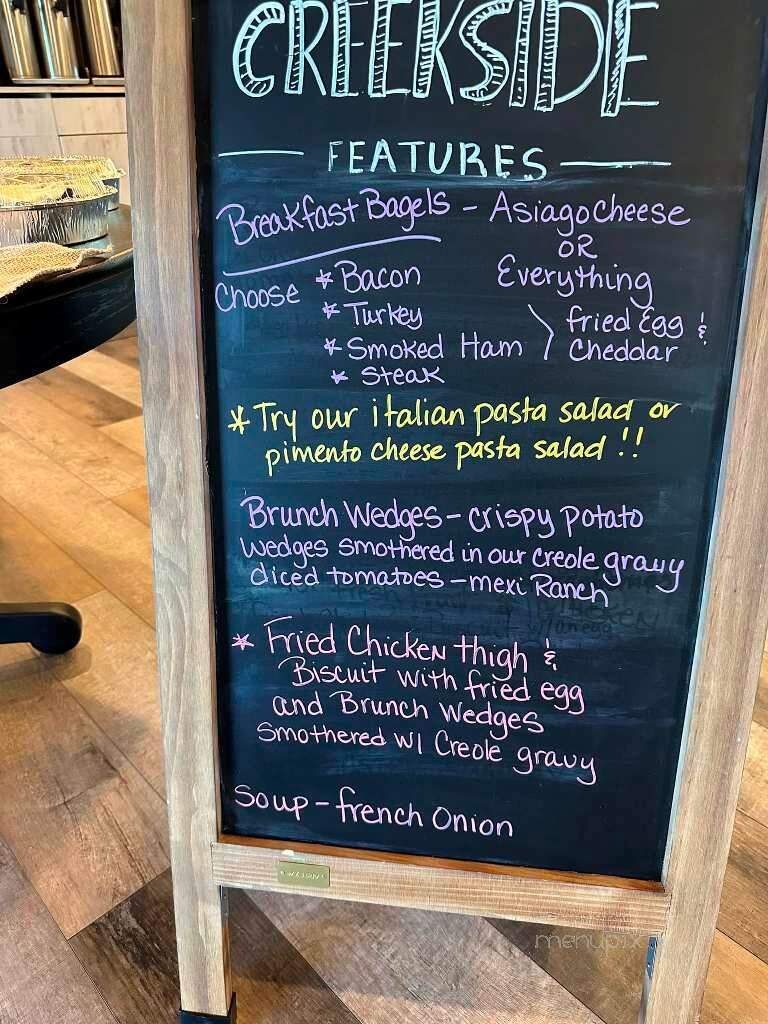 CREEKSIDE
FEATURES
Breakfast Bagels - Asiago cheese
OR
Everything
Choose * Bacon
* Turkey
* Smoked Ham
* Steak
> fried Egg &
Cheddar
* Try our italian pasta salad or
pimento cheese pasta salad !!
Brunch Wedges - crispy potato
wedges smothered in our creole gravy
diced tomatoes - mexi Ranch
* Fried Chicken thigh &
Biscuit with fried egg
and Brunch Wedges
Smothered w/ Creole gravy
Soup - french Onion
menupix